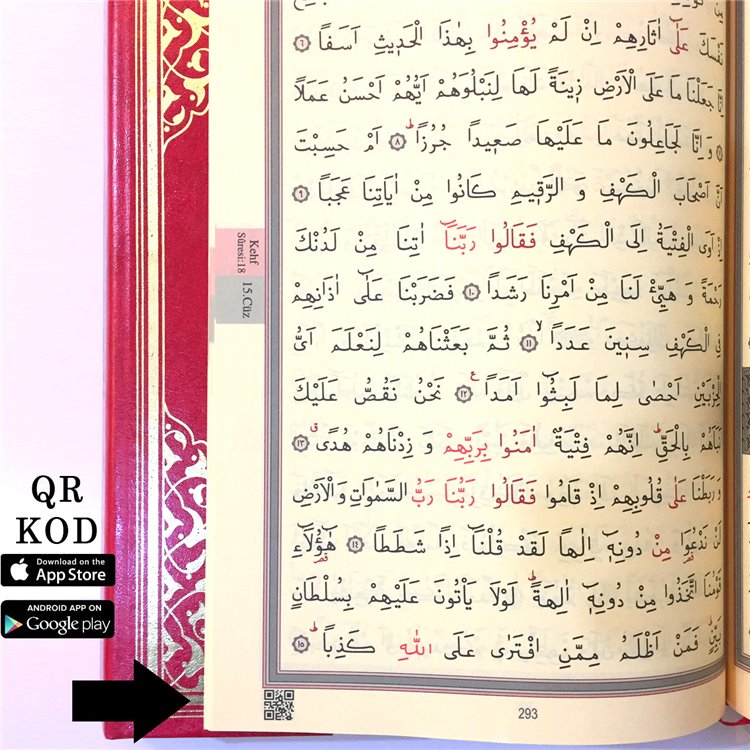 نَفْسَكَ عَلٰٓى اٰثَارِهِمْ اِنْ لَمْ يُؤْمِنُوا بِهٰذَا الْحَدٖيثِ اَسَفاً ﴿٦﴾
جَعَلْنَا مَا عَلَى الْاَرْضِ زٖينَةً لَهَا لِنَبْلُوَهُمْ اَيُّهُمْ اَحْسَنُ عَمَلاً
وَ اِنَّا لَجَاعِلُونَ مَا عَلَيْهَا صَعٖيداً جُرُزاًؕ ﴿٨﴾ اَمْ حَسِبْتَ
اَنَّ اَصْحَابَ الْكَهْفِ وَ الرَّقٖيمِ كَانُوا مِنْ اٰيَاتِنَا عَجَباً ﴿٩﴾
اِذْ اَوَى الْفِتْيَةُ اِلَى الْكَهْفِ فَقَالُوا رَبَّنَٓا اٰتِنَا مِنْ لَدُنْكَ
رَحْمَةً وَ هَيِّئْ لَنَا مِنْ اَمْرِنَا رَشَداً ﴿١٠﴾ فَضَرَبْنَا عَلٰٓى اٰذَانِهِمْ
فِي الْكَهْفِ سِنٖينَ عَدَداًۙ ﴿١١﴾ ثُمَّ بَعَثْنَاهُمْ لِنَعْلَمَ اَيُّ
الْحِزْبَيْنِ اَحْصٰى لِمَا لَبِثُٓوا اَمَداً ﴿١٢﴾ نَحْنُ نَقُصُّ عَلَيْكَ
نَبَاَهُمْ بِالْحَقِّؕ اِنَّهُمْ فِتْيَةٌ اٰمَنُوا بِرَبِّهِمْ وَ زِدْنَاهُمْ هُدًىۗ ﴿١٣﴾
وَ رَبَطْنَا عَلٰى قُلُوبِهِمْ اِذْ قَامُوا فَقَالُوا رَبُّنَا رَبُّ السَّمٰوَاتِ وَ الْاَرْضِ
لَنْ نَدْعُوَا مِنْ دُونِهٖٓ اِلٰهاً لَقَدْ قُلْنَٓا اِذاً شَطَطاً ﴿١٤﴾ هٰٓؤُلَٓاءِ
قَوْمُنَا اتَّخَذُوا مِنْ دُونِهٖٓ اٰلِهَةًؕ لَوْلَا يَاْتُونَ عَلَيْهِمْ بِسُلْطَانٍ
بَيِّنٍؕ فَمَنْ اَظْلَمُ مِمَّنِ افْتَرٰى عَلَى اللّٰهِ كَذِباًؕ ﴿١٥﴾
293
Kehf
Sûresi:18
15.Cüz
QR
KOD
Download on the
App Store
ANDROID APP ON
Google play